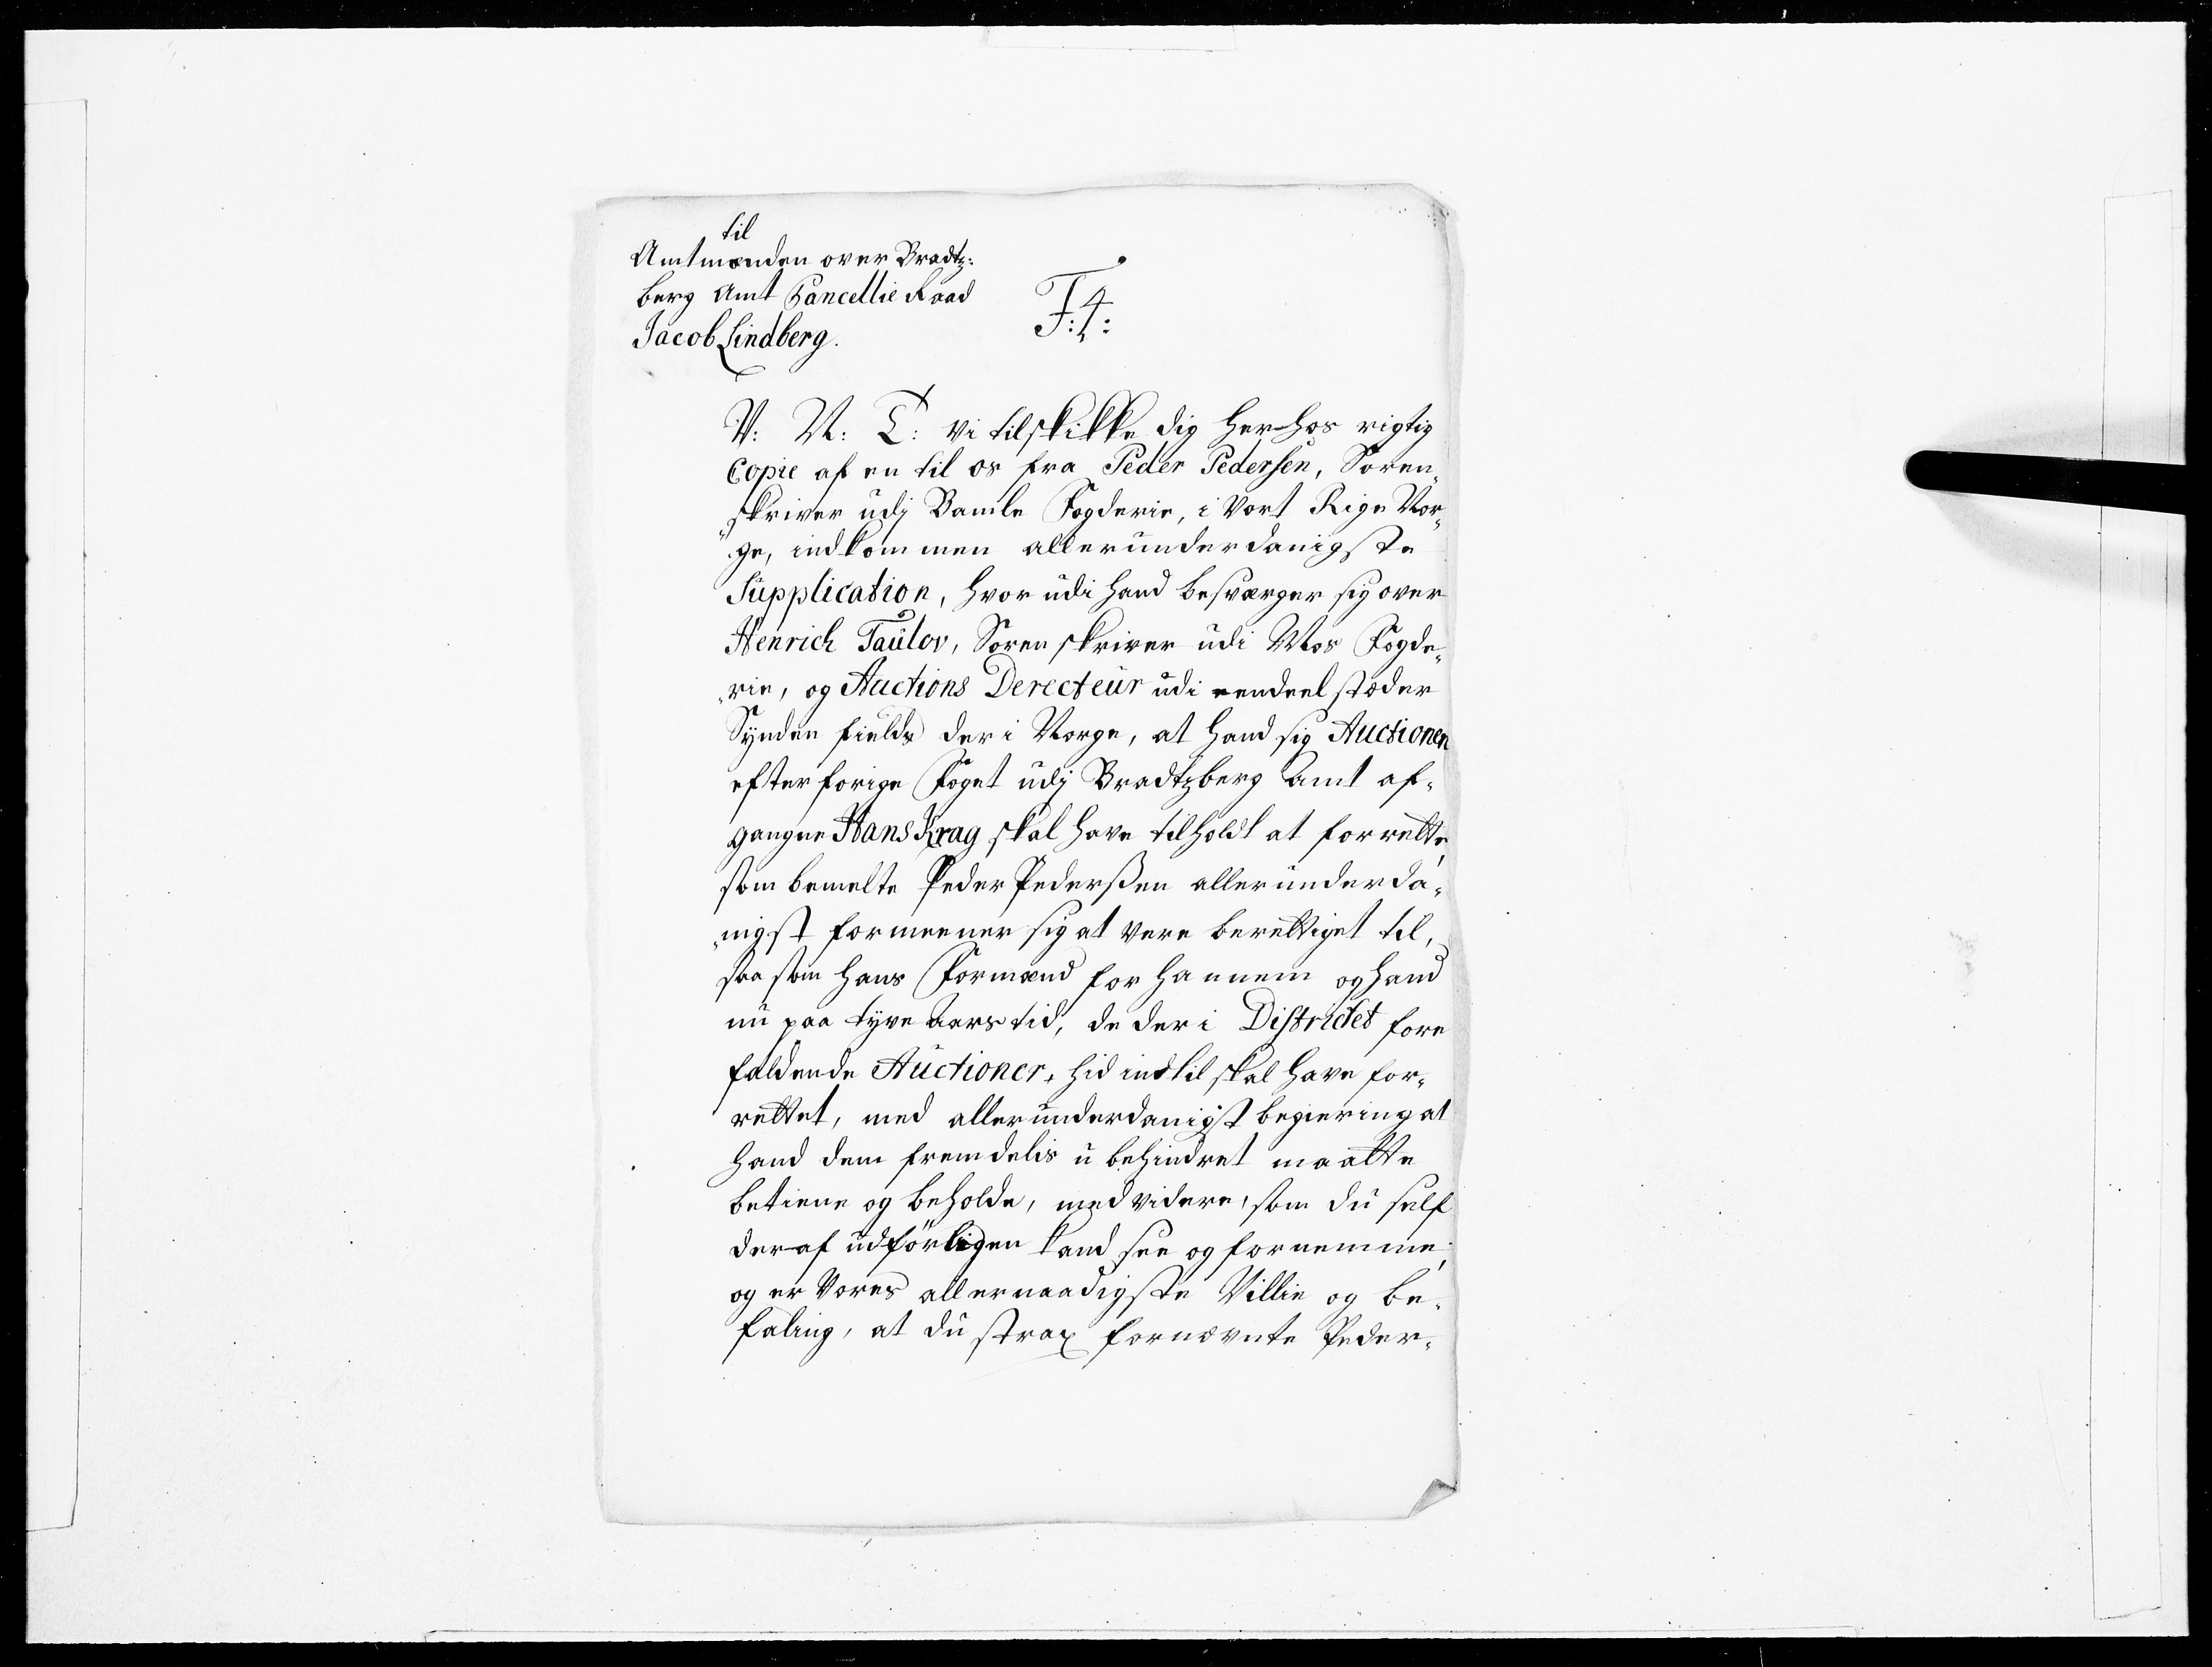 til
Amtmanden over Bradtz:
berg Amt Cancellie Raad
Jacob Lindberg.
F:4:
V: N: T: Vi tilskikke dig herhos rigtig
Copie af en til os fra Peder Pedersen, Soren„
skriver udj Bamle Fogderie, i Vort Rige Nor„
„ge, indkommen allerunderdanigste
Supplication, hvor udi hand besværger sig over
Henrich Taulov, Sorenskriver udi Mos Fogde„
„rie, og Auctions Derecteur udi eendeel stæder
Synden fields der i Norge, at hand sig Auctionen
efter forige Foget udj Bradtzberg Amt af„
gangne Hans Krag skal have tilholdt at forrette,
som bemelte Peder Pederssen allerunderda„
„nigst formeener sig at være berettiget til,
saa som hans Formænd for hannem og hand
nu paa tyve Aars tid, de der i Districtet fore
faldende Auctioner, hid indtil skal have for„
rettet, med allerunderdanigst begiering at
hand dem fremdelis u behindret maatte
betiene og beholde, med videre, som du self
deraf udförligen kand see og fornemme;
og er Vores allernaadigste Villie og be„
faling, at du strax fornævnte Peder„